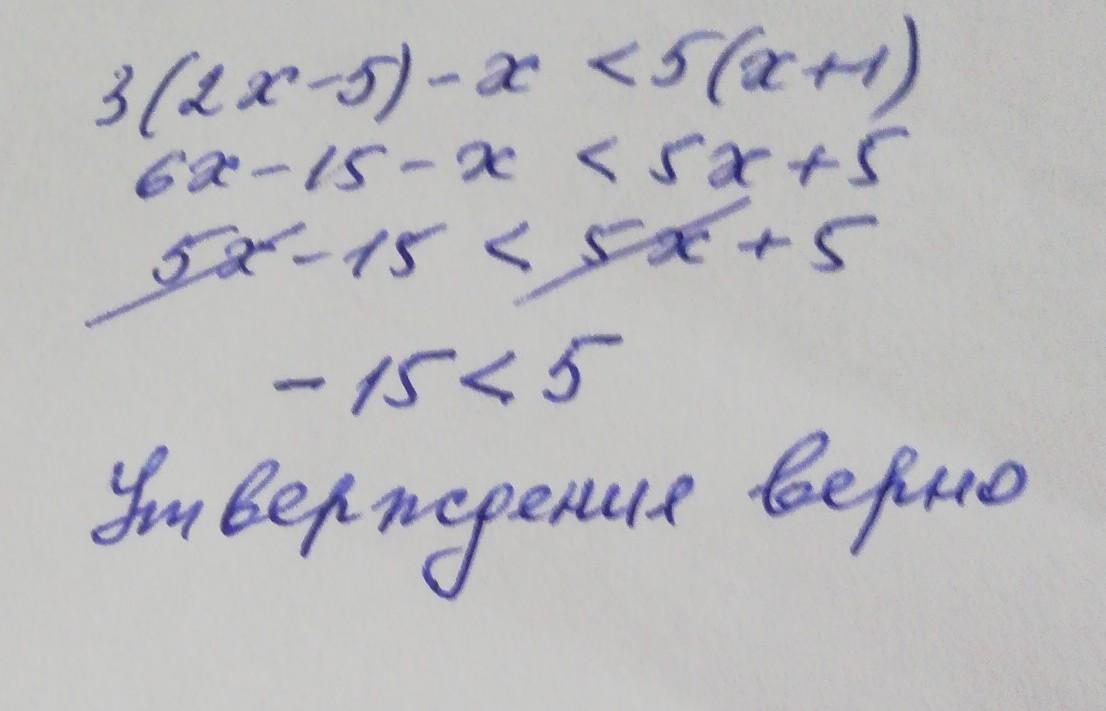 3(2x-5)-x <5(x+1)
6x-15-x < 5x+5
5x-15 < 5x+5
-15<5
Утверждение верно